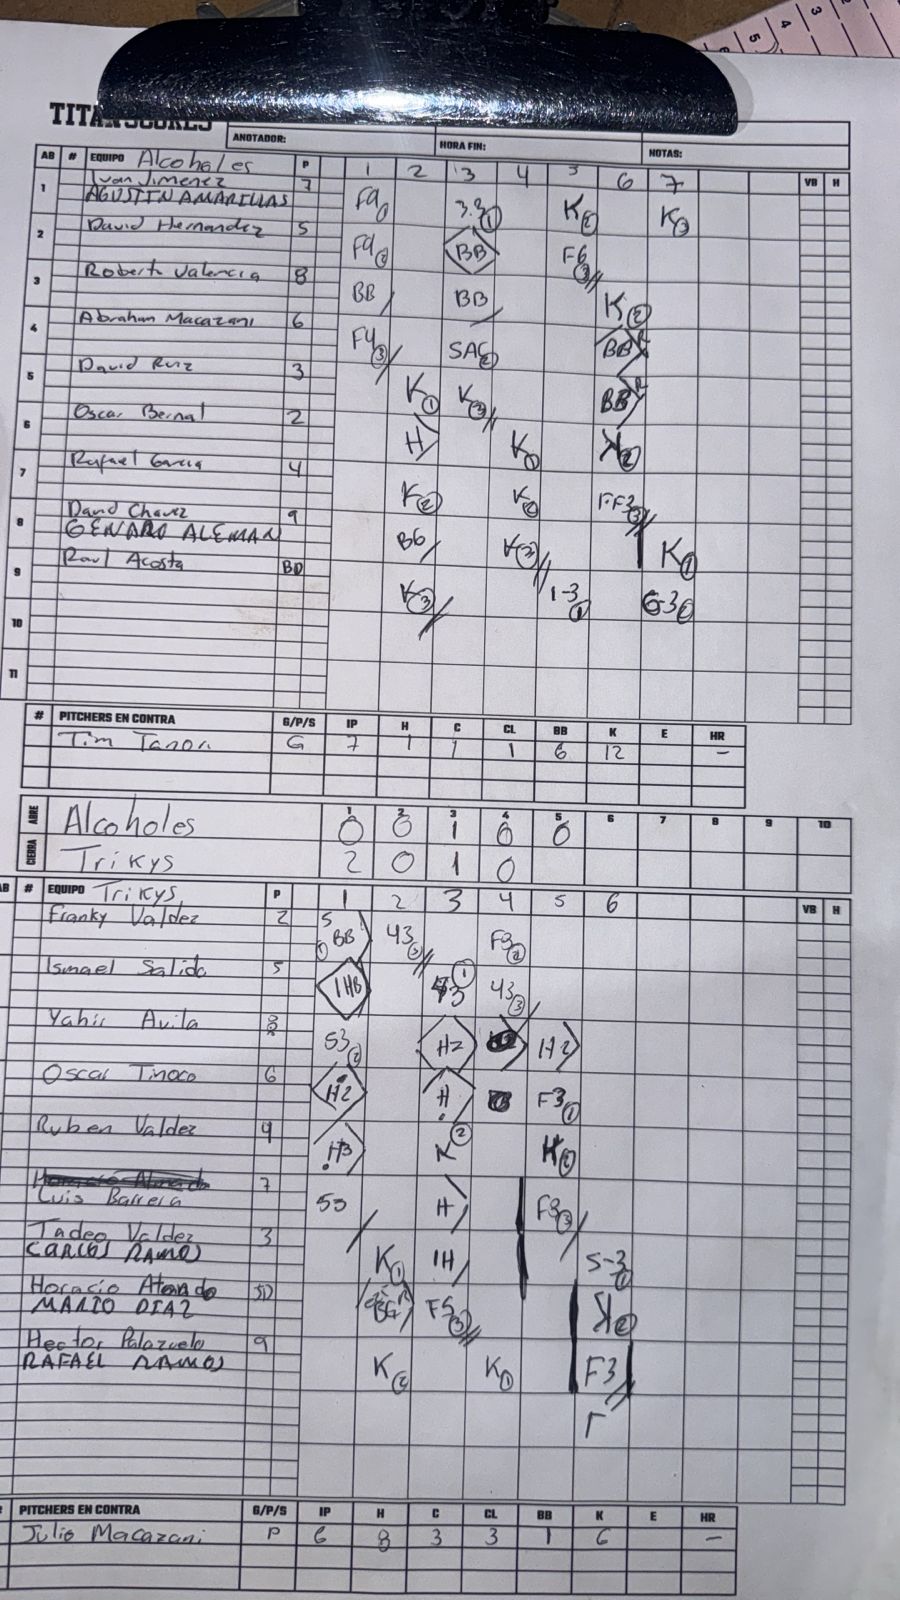 TITAN SCORES
ANOTADOR: HORA FIN: NOTAS:
AB # EQUIPO Alcoholes P 1 2 3 4 5 6 7 VB H
1 Ivan Jimenez 7 F9 3.3 1 K 2 K 3
AGUSTIN AMARILLAS
2 David Hernandez 5 F9 2 BB F6 3
3 Roberto Valencia 8 BB BB K
4 Abraham Macazani 6 F4 3 SAC 2 BB
5 David Ruiz 3 K 1 K 3 BB
6 Oscar Bernal 2 H K 1 K 2
7 Rafael Garcia 4 K 2 K 2 FF3 3
8 David Chavez 9 K 3 K 1
GENARO ALEMAN
9 Raul Acosta BD K 3 1-3 1 6-3
10
11
# PITCHERS EN CONTRA G/P/S IP H C CL BB K E HR
Tim Tanori G 7 1 1 1 6 12 -
ABRE Alcoholes 0 0 1 0 0
CIERRA Trikys 2 0 1 0
1 2 3 4 5 6 7 8 9 10
AB # EQUIPO Trikys P 1 2 3 4 5 6 VB H
Franky Valdez 2 5 1 BB 43 3 F8 2
Ismael Salido 5 1HB 1 43 3
Yahir Avila 8 53 2 H2 H2
Oscar Tinoco 6 H2 H F3 1
Ruben Valdez 4 H3 K 2 K 2
7 53 H F8 3
Luis Barrera
Tadeo Valdez 3 K 1 1H 5-3 1
CARLOS RAMOS
Horacio F5 3 K 2
MARIO DIAZ
Hector Palazuelo 9 K 2 K 1 F3
RAFAEL RAMOS
# PITCHERS EN CONTRA G/P/S IP H C CL BB K E HR
Julio Macazani P 6 8 3 3 1 6 -